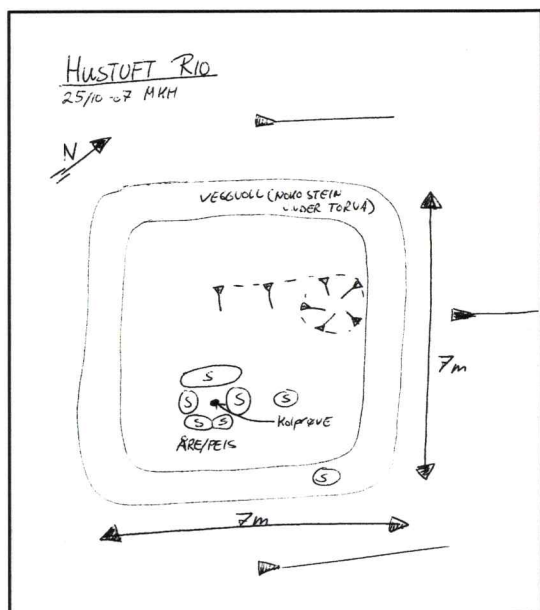 HUSTUFT R10
25/10-07 MKH
N
VEGGVOLL (NOKO STEIN
UNDER TORVA)
7m
S
S S S
S S
Kolprøve
ÅRE/PEIS
S
7m